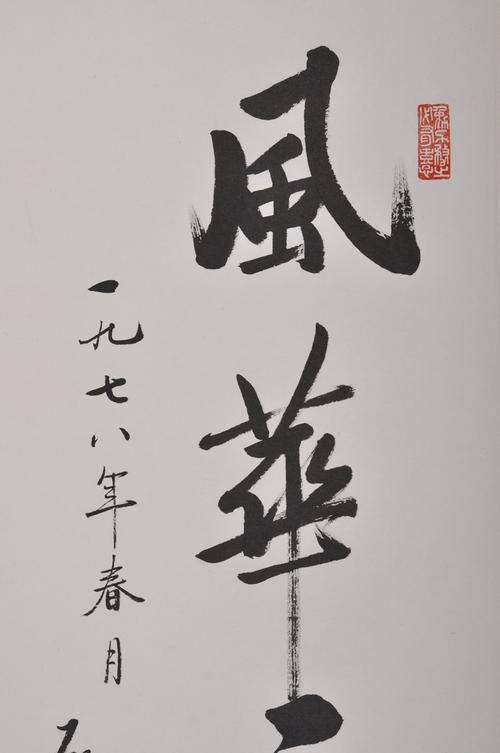 風華
一九七八年春月